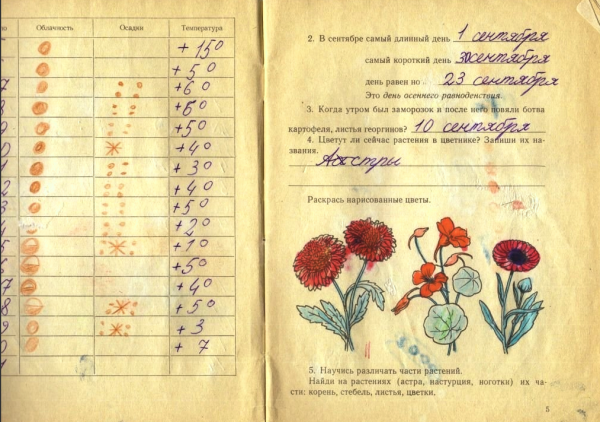 Облачность Осадки Температура
+ 15°
+ 5°
+ 6°
+ 6°
+ 5°
+ 4°
+ 3°
+ 4°
+ 5°
+ 2°
+ 1°
+ 5°
+ 4°
+ 5°
+ 3
+ 7
2. В сентябре самый длинный день 1 сентября
самый короткий день 30 сентября
день равен но 23 сентября
Это день осеннего равноденствия.
3. Когда утром был заморозок и после него повяли ботва
картофеля, листья георгинов? 10 сентября
4. Цветут ли сейчас растения в цветнике? Запиши их на-
звания. Аастры
Раскрась нарисованные цветы.
5. Научись различать части растений.
Найди на растениях (астра, настурция, ноготки) их ча-
сти: корень, стебель, листья, цветки.
5